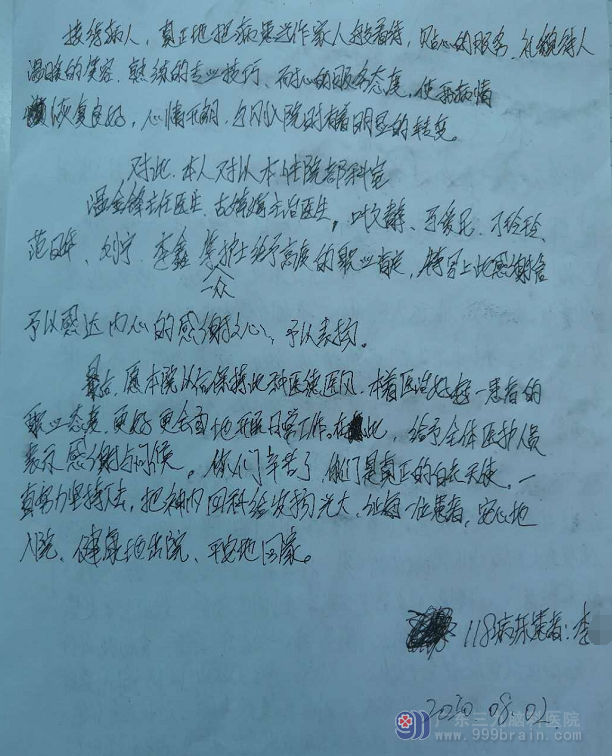 接待病人，真正地把病患当作家人般看待，贴心的服务，礼貌待人
温暖的笑容、熟练的专业技巧、耐心的服务态度，使我病情
恢复良好，心情开朗，与刚入院时有着明显的转变。
对此，本人对以本住院部科室
温金锋主任医生、古 主治医生，
范日华、刘宁、李鑫等众护士给予高度的职业肯定，特呈上此感谢信
予以感达内心的感谢之心，予以表扬。
最后，愿本院以后保持此种医德医风，本着医治好每一患者的
职业态度，更好更全面地开展日常工作。在此，给予全体医护人员
表示感谢与问候。你们辛苦了，你们是真正的白衣天使，一
直努力坚持下去，把神内四科给发扬光大，让每一位患者，安心地
入院、健康地出院、平安地回家。
118病床患者：李
2020.08.02
广东三九脑科医院
www.999brain.com